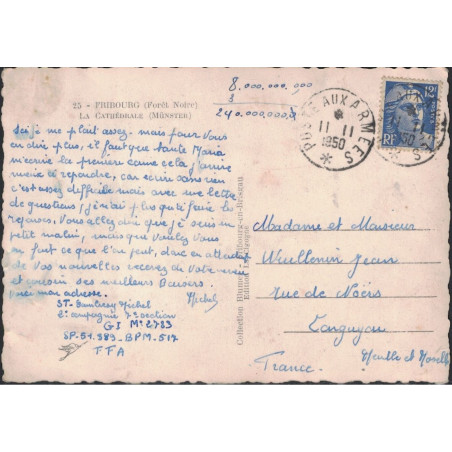 8.000.000.000
3
240.000.000,0
25 - FRIBOURG (Forêt Noire)
LA CATHÉDRALE (MÜNSTER)
POSTE AUX ARMEES
11 11
1950
12F
RF
Ici je me plait assez. mais pour vous
en dire plus, il faut que tante Maria
m'écrive la première comme cela j'aurai
à répondre, car écrire sans rien
c'est assez difficile mais avec une lettre
de questions je n'ai plus qu'à faire les
réponses. Vous allez dire que je suis un
petit malin, mais que voulez vous
on fait ce que l'on peut, donc en attendant
de vos nouvelles recevez de votre neveu
et cousin ses meilleurs Baisers.
mon adresse. Michel
ST Michel
2e compagnie 7e section
GI Mle 2783
SP-51.989-BPM.517
TFA
Collection Blumen Fribourg-en-Brisgau
Madame et Monsieur
Jean
rue de
Longuyon
Meurthe et Moselle
France